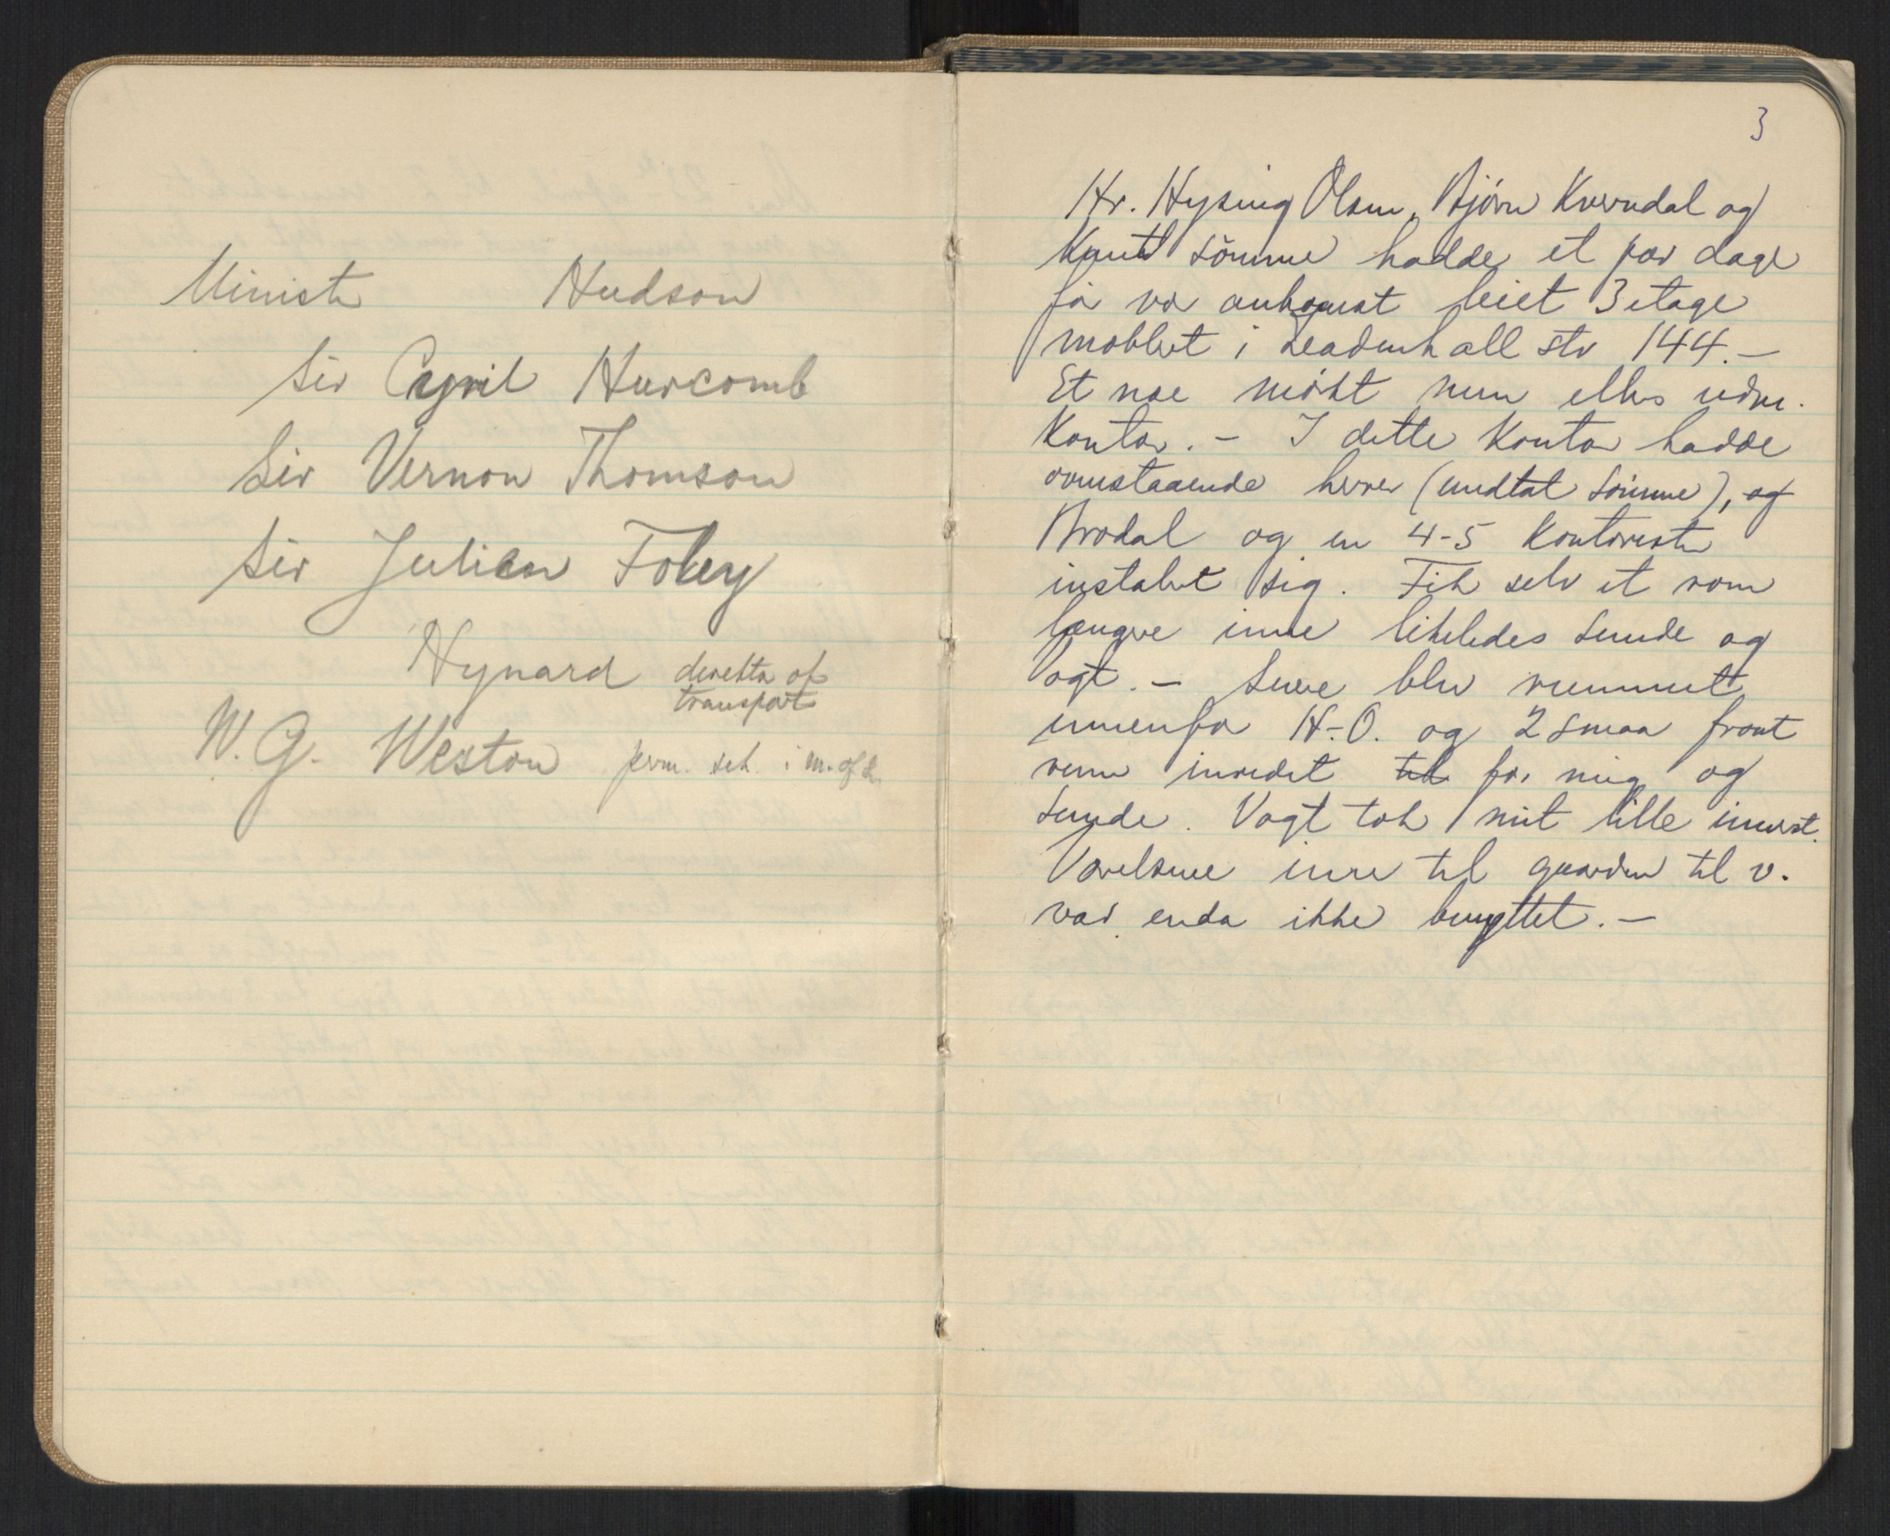 Minister Hudson
Sir Cyril Hurcomb
Sir Vernon Thomson
Sir Julian Foley
Hynard direktør of
transport
W. G. Weston perm. sek. i m. of s.
3
Hr. Hysing Olsen, Bjørn Kverndal og
Knut Sömme hadde et par dage
før vor ankomst leiet 3 etage
møblert i Leadenhall str 144. –
Et noe mørkt men ellers udm.
kontor. – I dette kontor hadde
ovenstaaende herrer (undtat Sömme), og
Brodal og en 4-5 kontorister
instalert sig. Fik selv et rom
længre inne likeledes Sunde og
Vogt. – Senere blev rummet
innenfor H.-O. og 2 smaa front
rum inredet til for mig og
Sunde. Vogt tok mit lille innerst.
Værelsene inne til gaarden til v.
var enda ikke benyttet. –